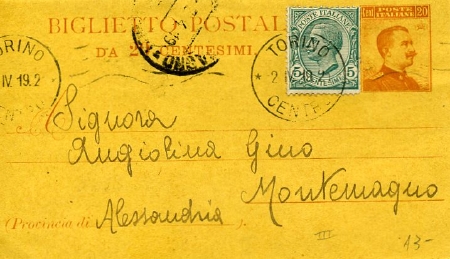 BIGLIETTO POSTALE
DA 20 CENTESIMI.
POSTE ITALIANE
5 5
Cent POSTE ITALIANE 20
TORINO
IV 19.2
TORINO
2 IV 19
CENTRO
Signora
Angiolina Gino
Montemagno
(Provincia di Alessandria).
III
13-